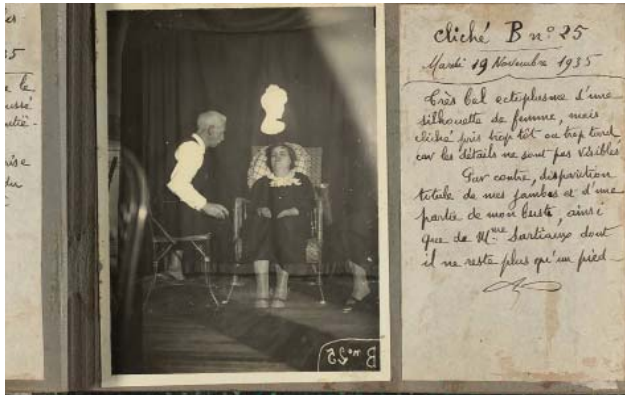 35
e le
ussé
rise
du
cliché B n° 25
Mardi 19 Novembre 1935
Très bel ectoplasme d'une
silhouette de femme, mais
cliché pris trop tôt ou trop tard
car les détails ne sont pas visibles
Par contre, disparition
totale de mes jambes et d'une
partie de mon buste, ainsi
que de Mme Sartiaux dont
il ne reste plus qu'un pied
B n° 25